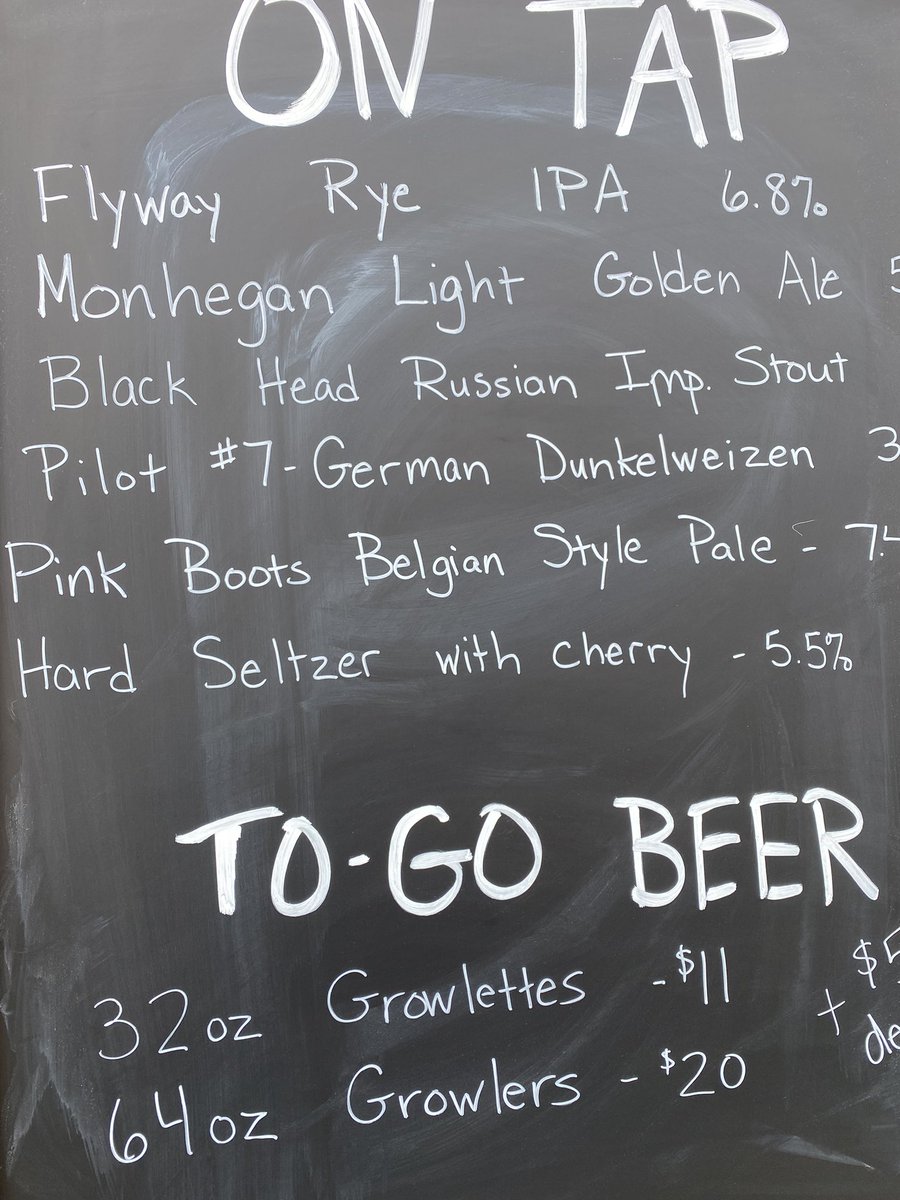 ON TAP
Flyway Rye IPA 6.8%
Monhegan Light Golden Ale 5
Black Head Russian Imp. Stout
Pilot #7-German Dunkelweizen 3
Pink Boots Belgian Style Pale - 7.4
Hard Seltzer with cherry - 5.5%
TO-GO BEER
32oz Growlettes - $11
64oz Growlers - $20
+ $5
de